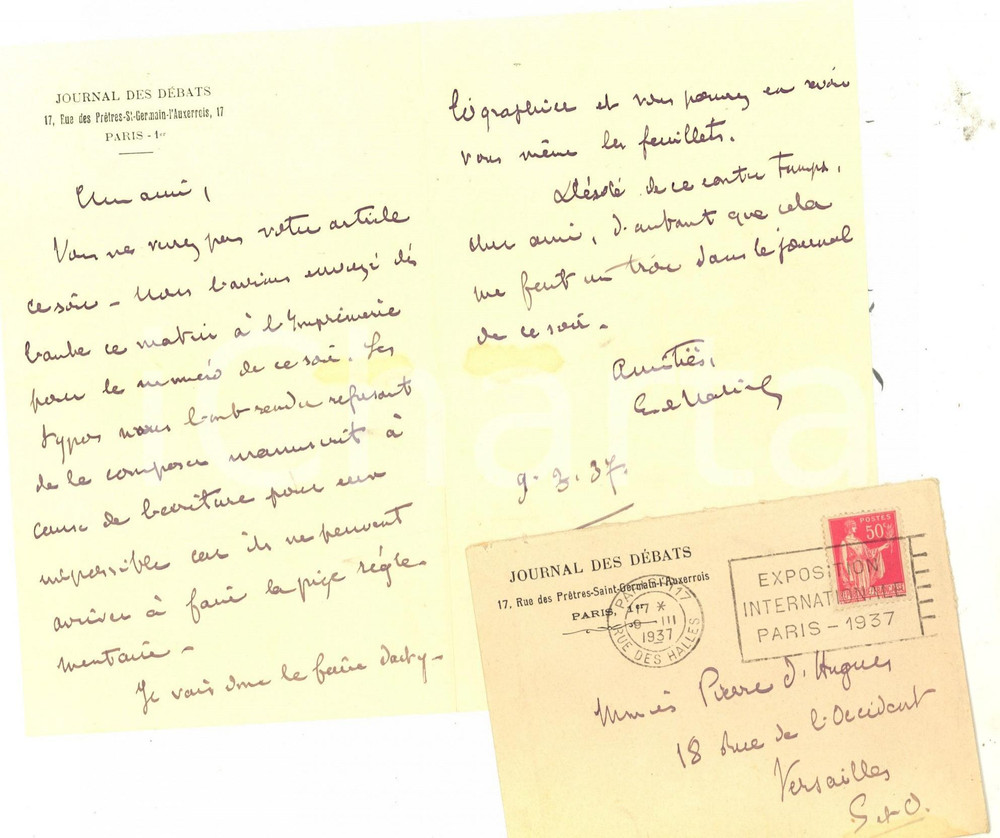 JOURNAL DES DÉBATS
17, Rue des Prêtres-St-Germain-l'Auxerrois, 17
PARIS - 1er
Cher ami,
Vous ne verrez pas votre article
ce soir – Nous l'avions envoyé dès
l'aube ce matin à l'Imprimerie
pour le numéro de ce soir. Les
typos nous l'ont rendu refusant
de le composer manuscrit à
cause de l'écriture pour eux
impossible car ils ne peuvent
arriver à faire la pige régle-
mentaire –
Je vais donc le faire dacty-
lographier et vous pourrez en revoir
vous même les feuillets.
Désolé de ce contre temps,
cher ami, d'autant que cela
me fait un trou dans le journal
de ce soir.
Amitiés,
9. 3. 37.
JOURNAL DES DÉBATS
17, Rue des Prêtres-Saint-Germain-l'Auxerrois
PARIS, 1er
POSTES
50c
PARIS 117
17 *
9 - III
1937
RUE DES HALLES
EXPOSITION
INTERNATIONALE
PARIS - 1937
Pierre d'Hugues
18 rue de l'Occident
Versailles
S et O.
iCharta